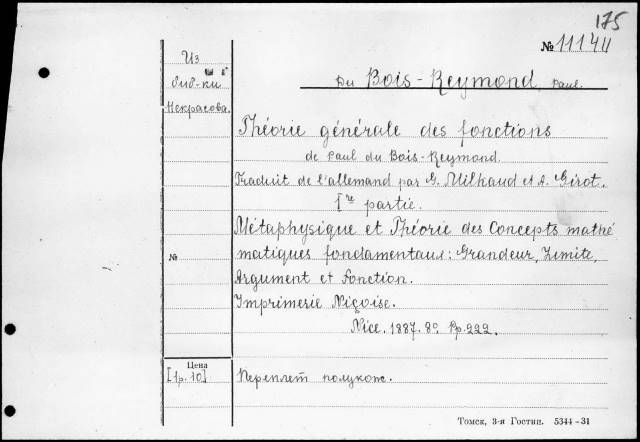 175
№ 11144
Из
биб-ки
Некрасова.
Du Bois-Reymond, Paul.
Théorie générale des fonctions
de Paul du Bois-Reymond
Traduit de l'allemand par G. Milhaud et A. Girot.
Ire partie.
Métaphysique et Théorie des Concepts mathé
matiques fondamentaux: Grandeur, Limite,
№
Argument et Fonction.
Imprimerie Niçoise.
Nice. 1887. 8º. Pp. 222.
Цена
[1р. 10]
Переплет полукож.
Томск, 3-я Гостип. 5344-31